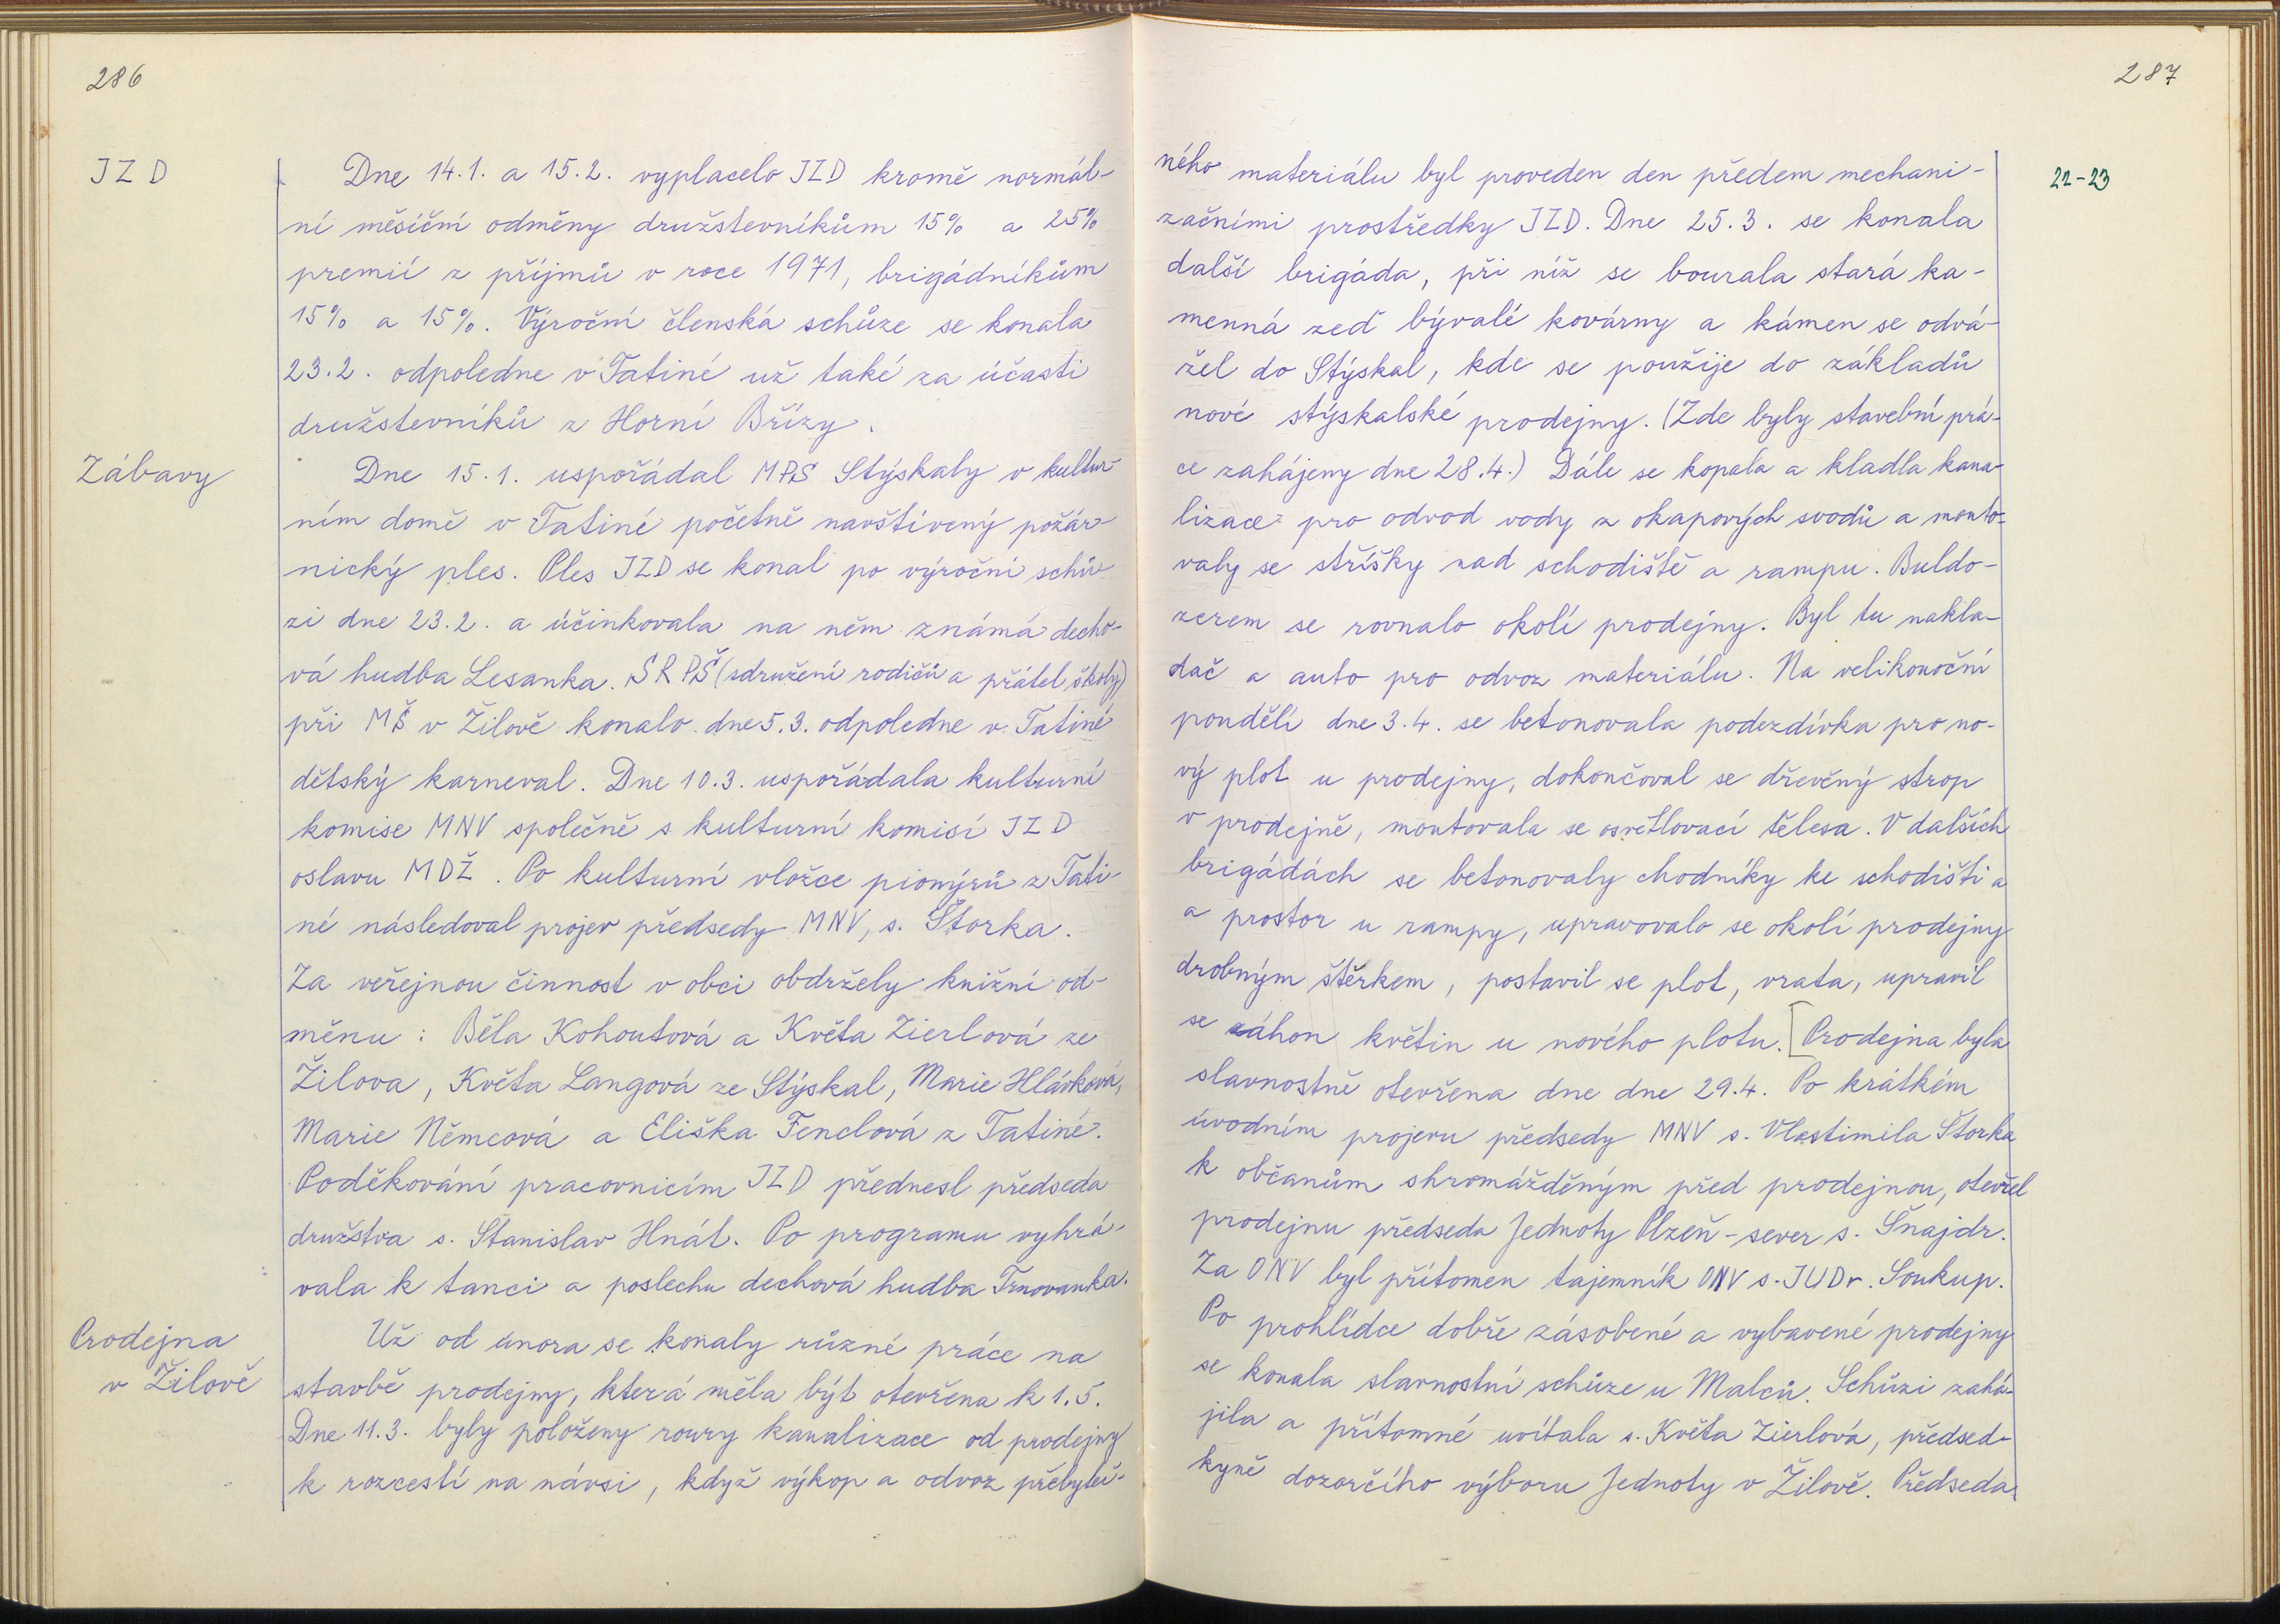 286
JZD
Dne 14.1. a 15.2. vyplacelo JZD kromě normál-
ní měsíční odměny družstevníkům 15% a 25%
premií z příjmů v roce 1971, brigádníkům
15% a 15%. Výroční členská schůze se konala
23.2. odpoledne v Tatiné už také za účasti
družstevníků z Horní Břízy.
Zábavy
Dne 15.1. uspořádal MPS Stýskaly v kultur-
ním domě v Tatiné početně navštívený požár-
nický ples. Ples JZD se konal po výroční schů-
zi dne 23.2. a účinkovala na něm známá decho-
vá hudba Lesanka. SRPŠ (sdružení rodičů a přátel školy)
při MŠ v Žilově konalo dne 5.3. odpoledne v Tatiné
dětský karneval. Dne 10.3. uspořádala kulturní
komise MNV společně s kulturní komisí JZD
oslavu MDŽ. Po kulturní vložce pionýrů z Tati-
né následoval projev předsedy MNV, s. Štorka.
Za veřejnou činnost v obci obdržely knižní od-
měnu: Běla Kohoutová a Květa Zierlová ze
Žilova, Květa Langová ze Stýskal, Marie Hlávková,
Marie Němcová a Eliška Fenclová z Tatiné.
Poděkování pracovnicím JZD přednesl předseda
družstva s. Stanislav Hnát. Po programu vyhrá-
vala k tanci a poslechu dechová hudba Trnovanka.
Prodejna
v Žilově
Už od února se konaly různé práce na
stavbě prodejny, která měla být otevřena k 1.5.
Dne 11.3. byly položeny roury kanalizace od prodejny
k rozcestí na návsi, když výkop a odvoz přebyteč-
287
22-23
ného materiálu byl proveden den předem mechani-
začními prostředky JZD. Dne 25.3. se konala
další brigáda, při níž se bourala stará ka-
menná zeď bývalé kovárny a kámen se odvá-
žel do Stýskal, kde se použije do základů
nové stýskalské prodejny. (Zde byly stavební prá-
ce zahájeny dne 28.4.) Dále se kopala a kladla kana-
lizace pro odvod vody z okapových svodů a monto-
valy se stříšky nad schodiště a rampu. Buldo-
zerem se rovnalo okolí prodejny. Byl tu nakla-
dač a auto pro odvoz materiálu. Na velikonoční
pondělí dne 3.4. se betonovala podezdívka pro no-
vý plot u prodejny, dokončoval se dřevěný strop
v prodejně, montovala se osvětlovací tělesa. V dalších
brigádách se betonovaly chodníky ke schodišti a
a prostor u rampy, upravovalo se okolí prodejny
drobným štěrkem, postavil se plot, vrata, upravil
se záhon květin u nového plotu. [Prodejna byla
slavnostně otevřena dne dne 29.4. Po krátkém
úvodním projevu předsedy MNV s. Vlastimila Štorka
k občanům shromážděným před prodejnou, otevřel
prodejnu předseda Jednoty Plzeň-sever s. Šnajdr.
Za ONV byl přítomen tajemník ONV s. JUDr. Soukup.
Po prohlídce dobře zásobené a vybavené prodejny
se konala slavnostní schůze u Malců. Schůzi zahá-
jila a přítomné uvítala s. Květa Zierlová, předsed-
kyně dozorčího výboru Jednoty v Žilově. Předseda